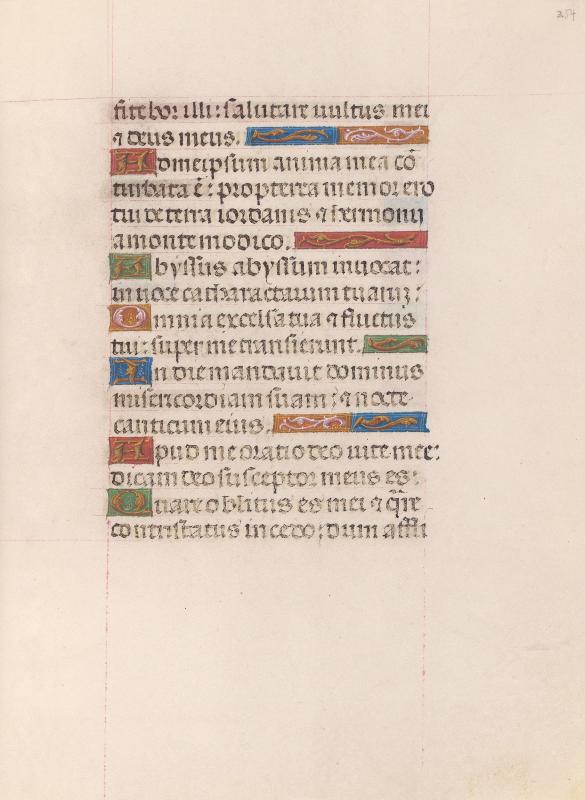 254
fitebor illi : salutare vultus mei
⁊ deus meus.
Ad meipsum anima mea cō
turbata ē : propterea memor ero
tui de terra iordanis ⁊ hermonij
a monte modico.
Abyssus abyssum invocat :
in voce catharactarum tuarū :
Omnia excelsa tua ⁊ fluctus
tui : super me transierunt.
In die mandavit dominus
misericordiam suam : ⁊ nocte
canticum eius.
Apud me oratio deo vite mee :
dicam deo susceptor meus es :
Quare oblitus es mei ⁊ q̄re
contristatus incedo : dum affli